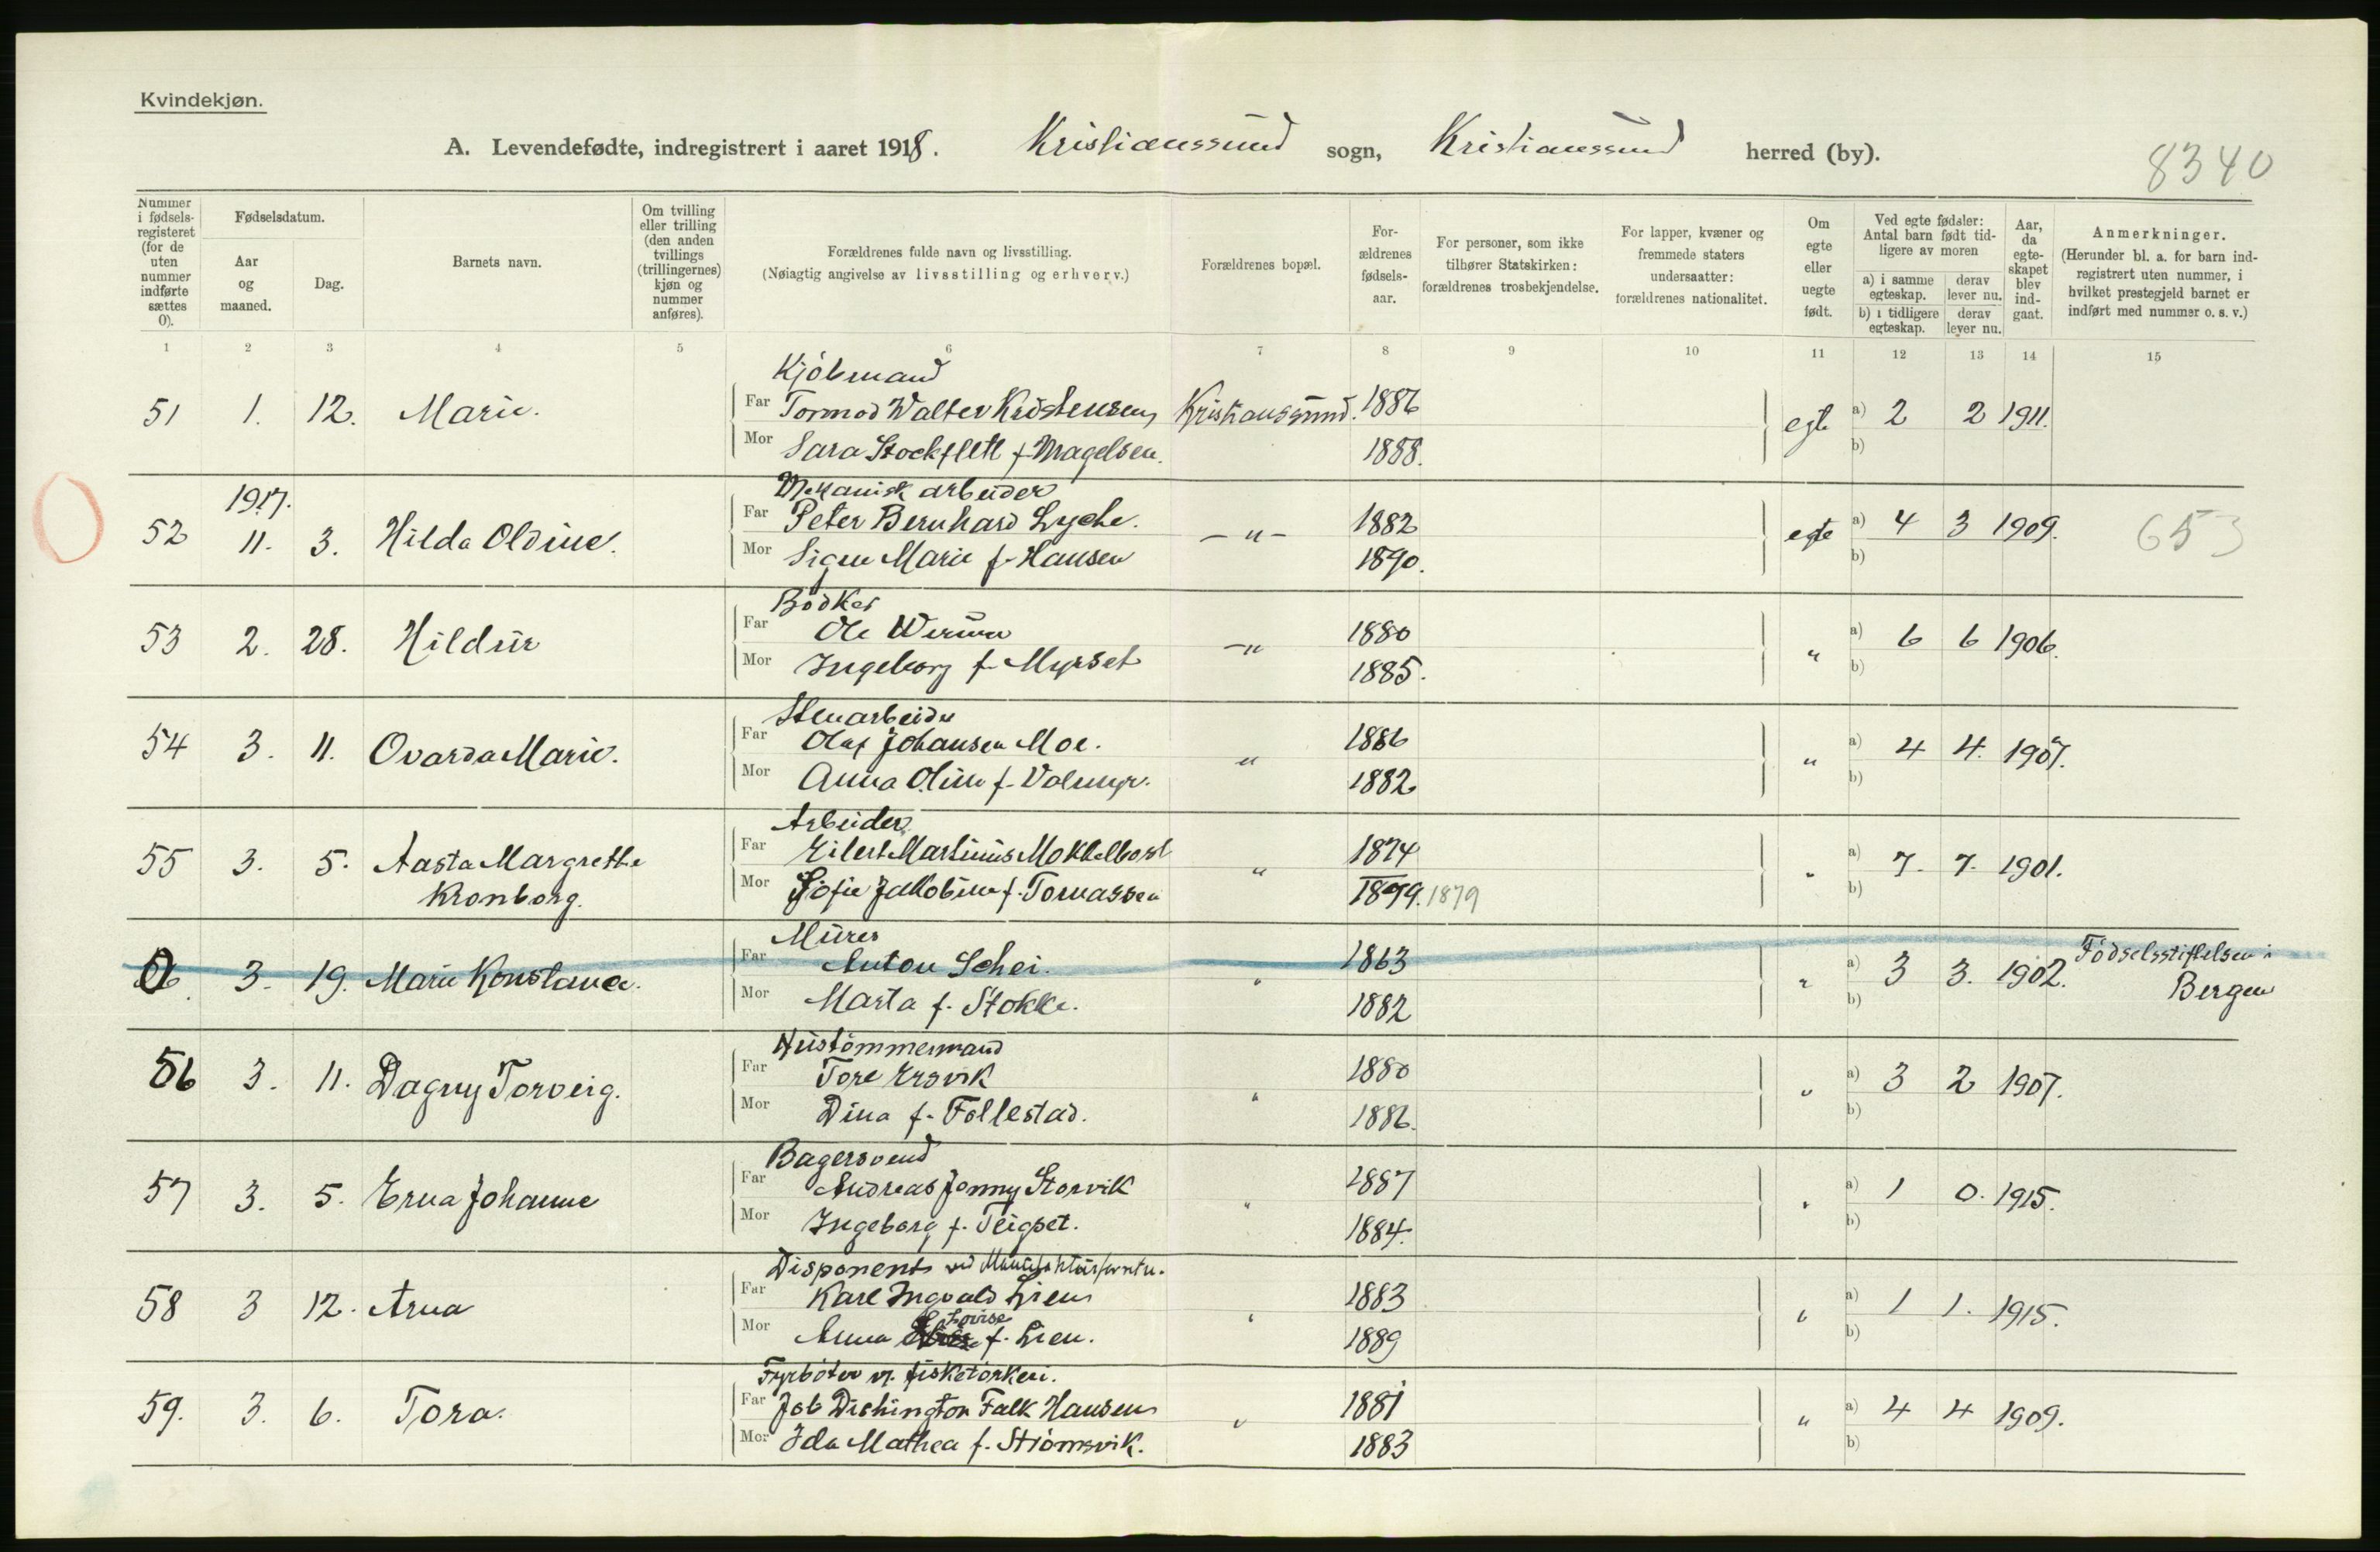 Kvindekjøn.
A. Levendefødte, indregistrert i aaret 1918. Kristianssund sogn, Kristianssund herred (by). 8340
Nummer i fødsels-registeret (for de uten nummer indførte sættes 0).
Fødselsdatum.
Aar og maaned.
Dag.
Barnets navn.
Om tvilling eller trilling (den anden tvillings (trillingernes) kjøn og nummer anføres).
Forældrenes fulde navn og livsstilling.
(Nøiagtig angivelse av livsstilling og erhverv.)
Forældrenes bopæl.
For-ældrenes fødsels-aar.
For personer, som ikke tilhører Statskirken: forældrenes trosbekjendelse.
For lapper, kvæner og fremmede staters undersaatter: forældrenes nationalitet.
Om egte eller uegte født.
Ved egte fødsler: Antal barn født tid-ligere av moren
a) i samme egteskap. derav lever nu.
b) i tidligere egteskap. derav lever nu.
Aar, da egte-skapet blev ind-gaat.
Anmerkninger.
(Herunder bl. a. for barn ind-registrert uten nummer, i hvilket prestegjeld barnet er indført med nummer o. s. v.)
1 2 3 4 5 6 7 8 9 10 11 12 13 14 15
Kjöbmand
51 1. 12. Marie. Far Tormod Walter Kristensen Kristianssund. 1886 egte a) 2 2 1911.
Mor Sara Stockfleth f. Magelsen. 1888. b)
1917. Mekanisk arbeider
52 11. 3. Hilda Oldine. Far Peter Bernhard Lyche. -"- 1882 egte a) 4 3 1909. 653
Mor Signe Marie f. Hansen 1890. b)
Bödker
53 2. 28. Hildur Far Ole -" 1880 " a) 6 6 1906.
Mor Ingeborg f. Myrset 1885. b)
Stenarbeider
54 3. 11. Ovarda Marie. Far Olaf Johansen Moe. " 1886 " a) 4 4. 1907.
Mor Anna Oline f. 1882 b)
Arbeider
55 3. 5. Aasta Margrethe Far Eilert Martinius Mokkelbost " 1874 " a) 7. 7. 1901.
Kronborg. Mor Sofie Jakobine f. Tomassen 1899. 1879 b)
Murer
0. 3. 19. Marie Konstance. Far Anton Schei. " 1863 " a) 3 3. 1902. Födselsstiftelsen i
Mor Marta f. Stokke. 1882 b) Bergen
Hustömmermand
56 3. 11. Dagny Torveig. Far Tore Ersvik " 1880 " a) 3 2 1907.
Mor Dina f. Follestad. 1886. b)
Bagersvend
57 3. 5. Erna Johanne Far Andreas Jonny Storvik " 1887 " a) 1 0. 1915.
Mor Ingeborg f. Teigset. 1884. b)
Disponent ved
58 3 12. Arna Far Karl Ingvald Lien " 1883 " a) 1 1. 1915.
Mor Anna Lovise f. Lien. 1889 b)
Fyrböter v. fisketörkeri.
59. 3. 6. Tora. Far Job Dishington Falk Hansen " 1881 " a) 4 4 1909.
Mor Ida Mathea f. Strömsvik. 1883 b)